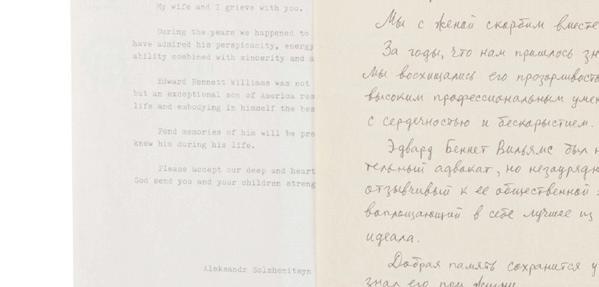 My wife and I grieve with you.
During the years we happened to
have admired his perspicacity, energy
ability combined with sincerity and
Edward Bennett Williams was not
but an exceptional son of America
life and embodying in himself the
Fond memories of him will be
knew him during his life.
Please accept our deep and
God send you and your children
Aleksandr Solzhenitsyn
Мы с женой скорбим вместе
За годы, что нам пришлось
Мы восхищались его
высоким профессиональным
с сердечностью и бескорыстием.
Эдвард Беннет Вильямс был
тельный адвокат, но
отзывчивый к её общественной
воплощающий в себе лучшее из
идеала.
Добрая память сохранится у
знал его при жизни.